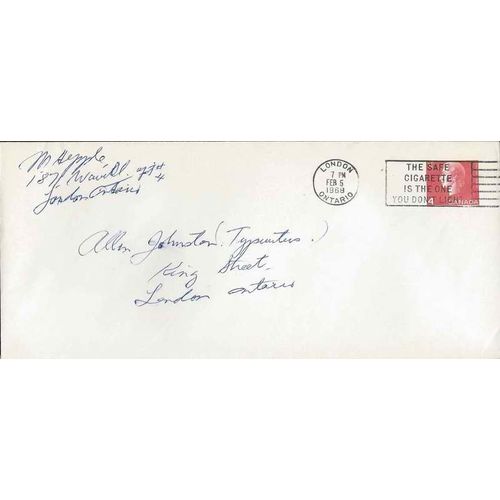 M Hepple
187 apt 4
London Ontario
LONDON
7 PM
FEB 5
1968
ONTARIO
THE SAFE
CIGARETTE
IS THE ONE
YOU DON'T LIGHT
4 CANADA
Allan Johnston (Typewriters)
King Street
London Ontario